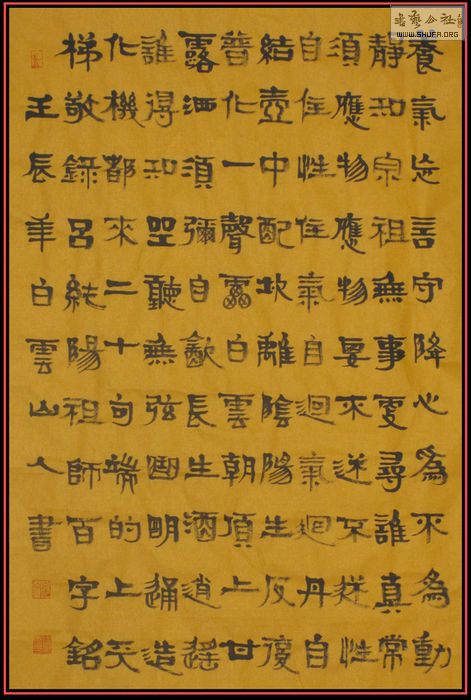 養氣忘言守降心為不為動
靜知宗祖無事更尋誰真常
須應物應物要來迷不迷性
自住性住氣自迴氣迴丹自
結壺中配坎離陰陽生反復
普化一聲雷白雲朝頂上甘
露洒須彌自飲長生酒逍遙
誰得知坐聽無弦曲明通造
化機都來二十句端的上天
梯敬錄呂純陽祖師百字銘
壬辰年白雲山人書
书艺公社
WWW.SHUFA.ORG